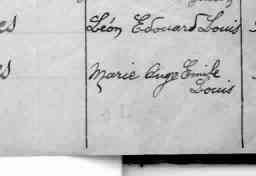 es Léon Edouard Louis
es Marie Ange Emile
Louis